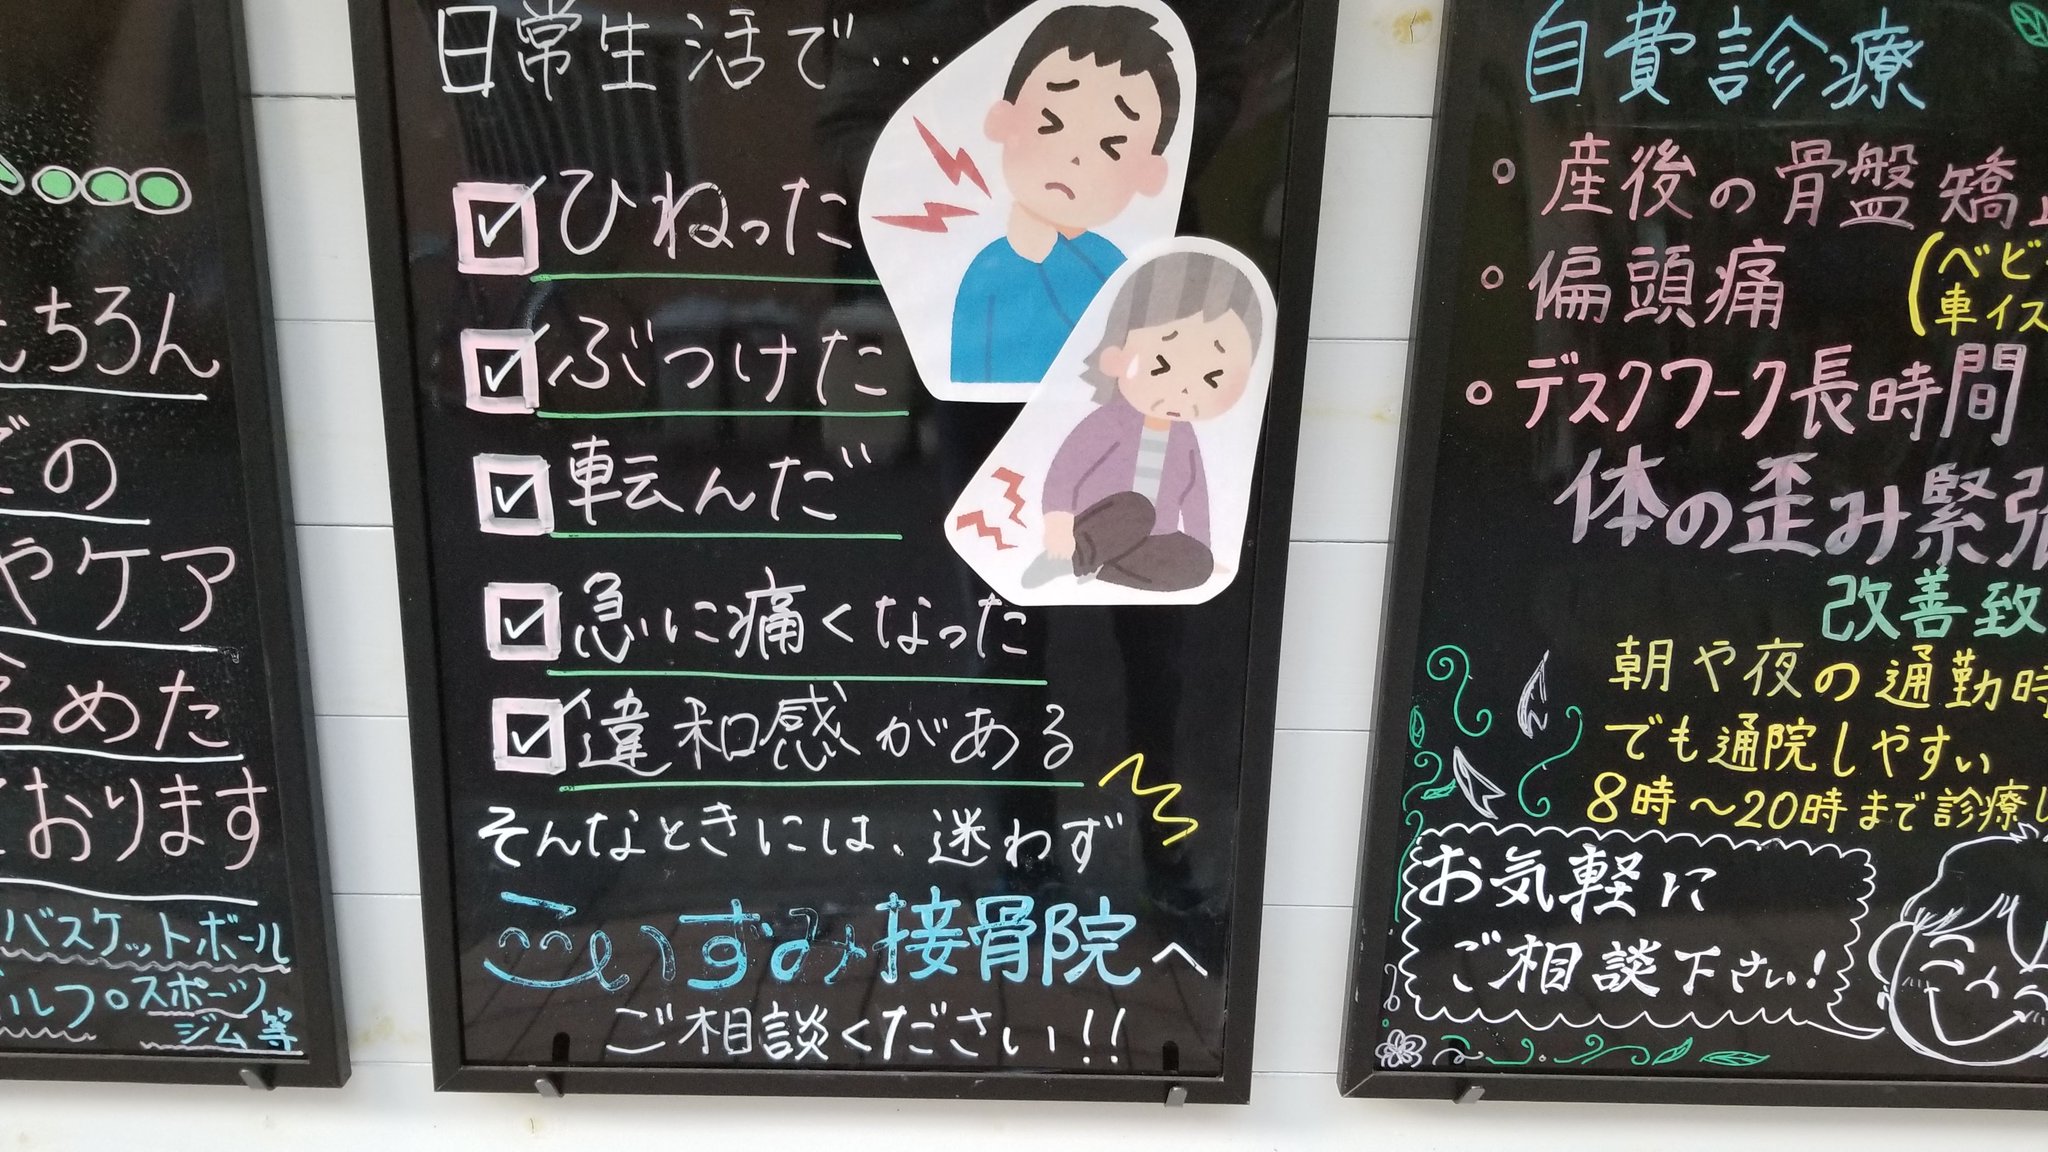 ちろん
の
やケア
含めた
ております
バスケットボール
ルフ・スポーツ
ジム等
日常生活で…
ひねった
ぶつけた
転んだ
急に痛くなった
違和感がある
そんなときには、迷わず
こいずみ接骨院へ
ご相談ください!!
自費診療
産後の骨盤矯
偏頭痛
(ベビ
車イス
デスクワーク長時間
体の歪み緊張
改善致
朝や夜の通勤時
でも通院しやすい
8時〜20時まで診療し
お気軽に
ご相談下さい!